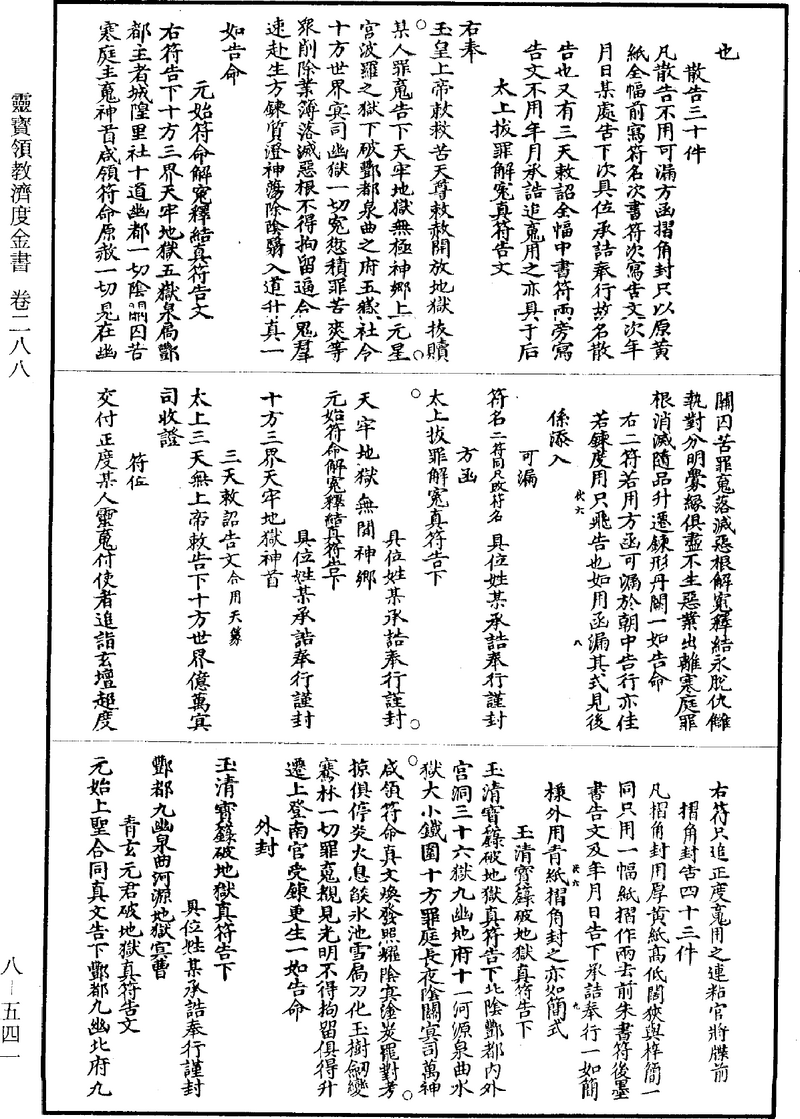 靈寶領教濟度金書 卷二八八
八—五四一
也
散告三十件
凡散告不用可漏方函摺角封只以原黃
紙全幅前寫符名次書符次寫告文次年
月日某處告下次具位承誥奉行故名散
告也又有三天敕詔全幅中書符兩旁寫
告文不用年月承誥追䰟用之亦具于后
太上拔罪解寃真符告文
右奉
玉皇上帝敕救苦天尊敕赦開放地獄拔贖
某人罪䰟告下天牢地獄無極神鄉上元星
宮波羅之獄下破酆都泉曲之府五嶽社令
十方世界㝠司幽獄一切寃愆積罪苦爽等
衆削除業簿落滅惡根不得拘留逼合鬼羣
速赴生方鍊質澄神蕩除陰翳入道升真一
如告命
元始符命解寃釋結真符告文
右符告下十方三界天牢地獄五嶽泉扃酆
都主者城隍里社十道幽都一切陰關囚苦
寒庭主䰟神首咸領符命原赦一切見在幽
關囚苦罪䰟落滅惡根解寃釋結永脫仇讎
執對分明釁緣俱盡不生惡業出離寒庭罪
根消滅隨品升遷鍊形丹闕一如告命
右二符若用方函可漏於朝中告行亦佳
若鍊度用只飛告也如用函漏其式見後
係添入
可漏
符名二符同只改符名 具位姓某承誥奉行謹封
方函
太上拔罪解寃真符告下
具位姓某承誥奉行謹封
天牢地獄無間神鄉
元始符命解寃釋結真符告下
具位姓某承誥奉行謹封
十方三界天牢地獄神首
三天敕詔告文合用天篆
太上三天無上帝敕告下十方世界億萬㝠
司收證
符位
交付正度某人靈䰟付使者追詣玄壇超度
右符只追正度䰟用之連粘官將牒前
摺角封告四十三件
凡摺角封用厚黃紙高低闊狹與梓簡一
同只用一幅紙摺作兩去前朱書符後墨
書告文及年月日告下承誥奉行一如簡
樣外用青紙摺角封之亦如簡式
玉清寶籙破地獄真符告下
玉清寶籙破地獄真符告下北陰酆都內外
宮洞三十六獄九幽地府十一河源泉曲水
獄大小鐵圍十方罪庭長夜陰關㝠司萬神
咸領符命真文煥發照耀陰㝠塗炭罷對考
掠俱停炎火息燄氷池雪扃刀化玉樹劒變
騫林一切罪䰟覩見光明不得拘留俱得升
遷上登南宮受鍊更生一如告命
外封
玉清寶籙破地獄真符告下
具位姓某承誥奉行謹封
酆都九幽泉曲河源地獄㝠曹
青玄元君破地獄真符告文
元始上聖合同真文告下酆都九幽北府九